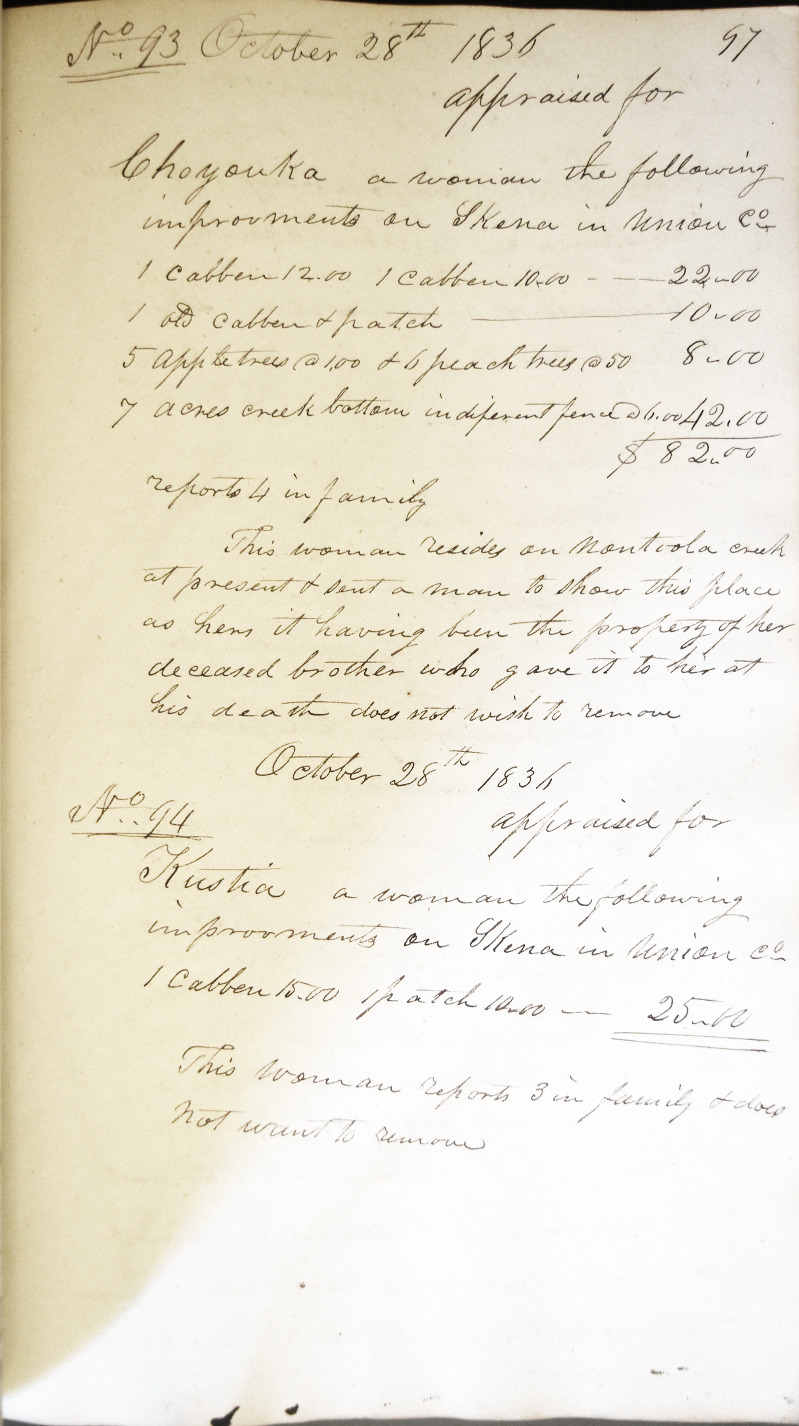 No. 93 October 28th 1836 97
appraised for
Choyouka a woman the following
improvments on Skena in Union Co
1 Cabben 12.00 1 Cabben 10.00 - — 22.00
1 old cabben & patch — 10.00
5 Apple trees @ 1,00 & 6 peach trees @ 50 8.00
7 acres creek bottom indiferent fence @ 6.00 42.00
$ 82.00
reports 4 in family
This woman resides on Nontoola creek
at present & sent a man to show this place
as hers it having been the property of her
deceased brother who gave it to her at
his death does not wish to remove
October 28th 1836
No. 94
appraised for
Kustia a woman the following
improvments on Skena in Union Co
1 Cabben 15.00 1 patch 10.00 — 25.00
This woman reports 3 in family & does
not want to remove